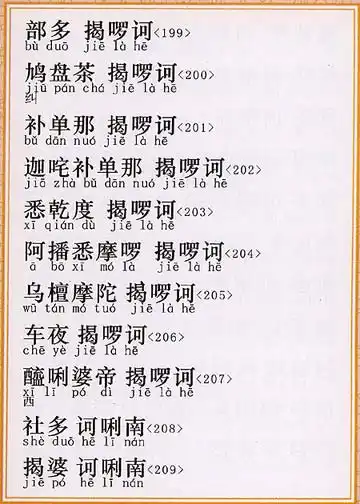 部多 揭啰诃<199>
bù duō jiē là hē
鸠盘茶 揭啰诃<200>
jiū pán chá jiē là hē
纠
补单那 揭啰诃<201>
bǔ dān nuó jiē là hē
迦咤补单那 揭啰诃<202>
jiā zhà bǔ dān nuó jiē là hē
悉乾度 揭啰诃<203>
xī qián dù jiē là hē
阿播悉摩啰 揭啰诃<204>
ā bō xī mó là jiē là hē
乌檀摩陀 揭啰诃<205>
wū tán mó tuó jiē là hē
车夜 揭啰诃<206>
chē yè jiē là hē
醯唎婆帝 揭啰诃<207>
xī lī pó dì jiē là hē
西
社多 诃唎南<208>
shè duō hē lī nán
揭婆 诃唎南<209>
jiē pó hē lī nán